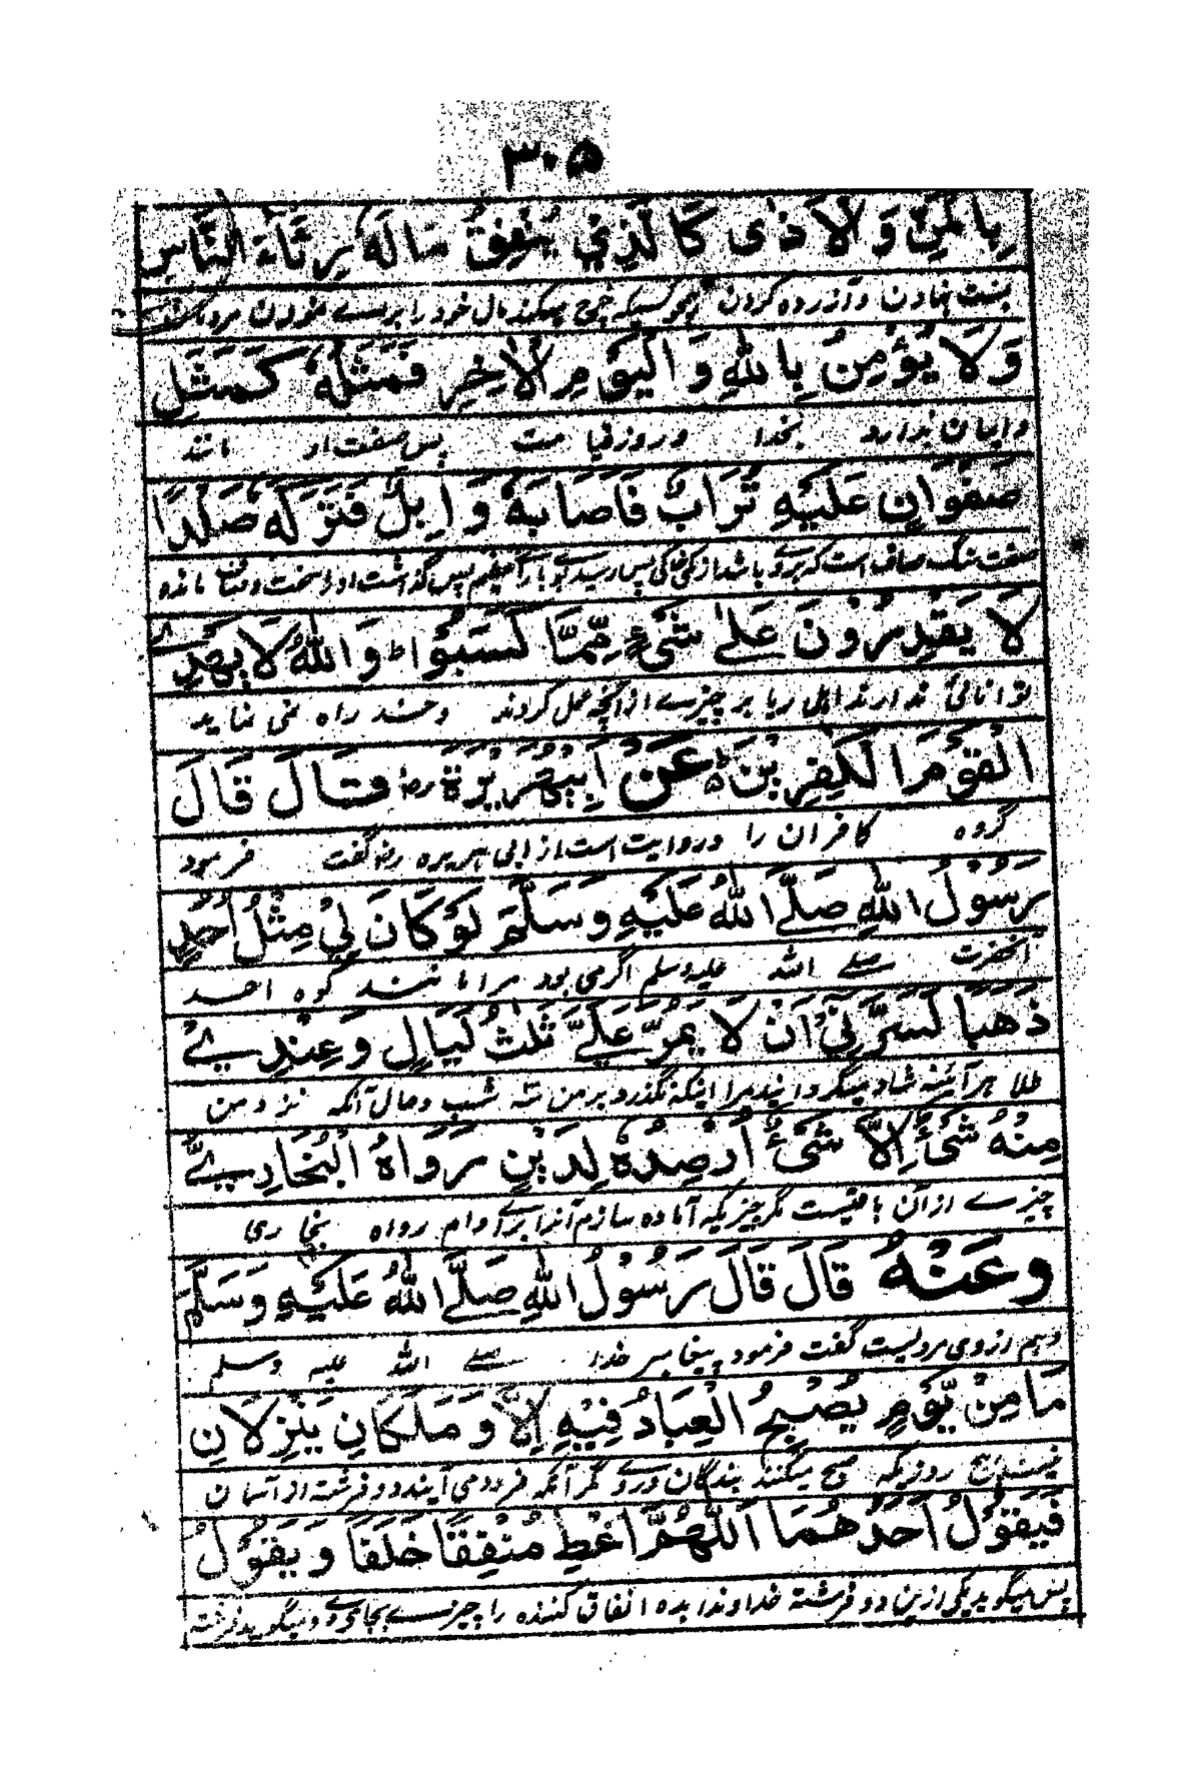 ۳۰۵
بِالْمَنِّ وَالْاَذٰى كَالَّذِيْ يُنْفِقُ مَالَهٗ رِئَآءَ النَّاسِ
بمنت نهادن و آزرده کردن همچو کسیکه خرچ میکند مال خود را برای نمودن مردمان
وَلَا يُؤْمِنُ بِاللّٰهِ وَالْيَوْمِ الْاٰخِرِ فَمَثَلُهٗ كَمَثَلِ
و ایمان ندارد بخدا و روز قیامت پس صفت او مانند
صَفْوَانٍ عَلَيْهِ تُرَابٌ فَاَصَابَهٗ وَابِلٌ فَتَرَكَهٗ صَلْدًا
صفت سنگ صاف است که بروی باشد اندکی خاکی پس رسید او را باران عظیم پس گذاشت او را سخت و صاف مانده
لَا يَقْدِرُوْنَ عَلٰے شَيْءٍ مِّمَّا كَسَبُوْا ط وَاللّٰهُ لَا يَهْدِے
توانائی ندارند اهل ریا بر چیزے از آنچه عمل کردند و خدا راه نمی نماید
الْقَوْمَ الْكٰفِرِيْنَ عَنْ اَبِيْهُرَيْرَةَ رض قَالَ قَالَ
گروه کافران را و روایت است از ابی هریره رض گفت فرمود
رَسُوْلُ اللّٰهِ صَلَّے اللّٰهُ عَلَيْهِ وَسَلَّمَ لَوْ كَانَ لِيْ مِثْلُ اُحُدٍ
آنحضرت صلے الله علیه وسلم اگر می بود مرا مانند کوه احد
ذَهَبًا لَسَرَّنِيْ اَنْ لَا يَمُرَّ عَلَيَّ ثَلٰثُ لَيَالٍ وَعِنْدِيْ
طلا هر آئینه شاد میگردانید مرا اینکه نگذرد بر من سه شب و حال آنکه نزد من
مِنْهُ شَيْءٌ اِلَّا شَيْءٌ اُرْصِدُهٗ لِدَيْنٍ رَوَاهُ الْبُخَارِيُّ
چیزے ازان باقیست مگر چیزیکه آماده سازم آنرا برای وام رواه بخاری
وَعَنْهُ قَالَ قَالَ رَسُوْلُ اللّٰهِ صَلَّے اللّٰهُ عَلَيْهِ وَسَلَّمَ
و هم از وی مرویست گفت فرمود پیغامبر خدا صلے الله علیه وسلم
مَا مِنْ يَّوْمٍ يُصْبِحُ الْعِبَادُ فِيْهِ اِلَّا وَمَلَكَانِ يَنْزِلَانِ
نیست هیچ روزیکه صبح میکنند بندگان دروی مگر آنکه فرود می آیند دو فرشته از آسمان
فَيَقُوْلُ اَحَدُهُمَا اَللّٰهُمَّ اَعْطِ مُنْفِقًا خَلَفًا وَيَقُوْلُ
پس میگوید یکی ازین دو فرشته خداوندا بده انفاق کننده را چیزے بجای وی و میگوید فرشته